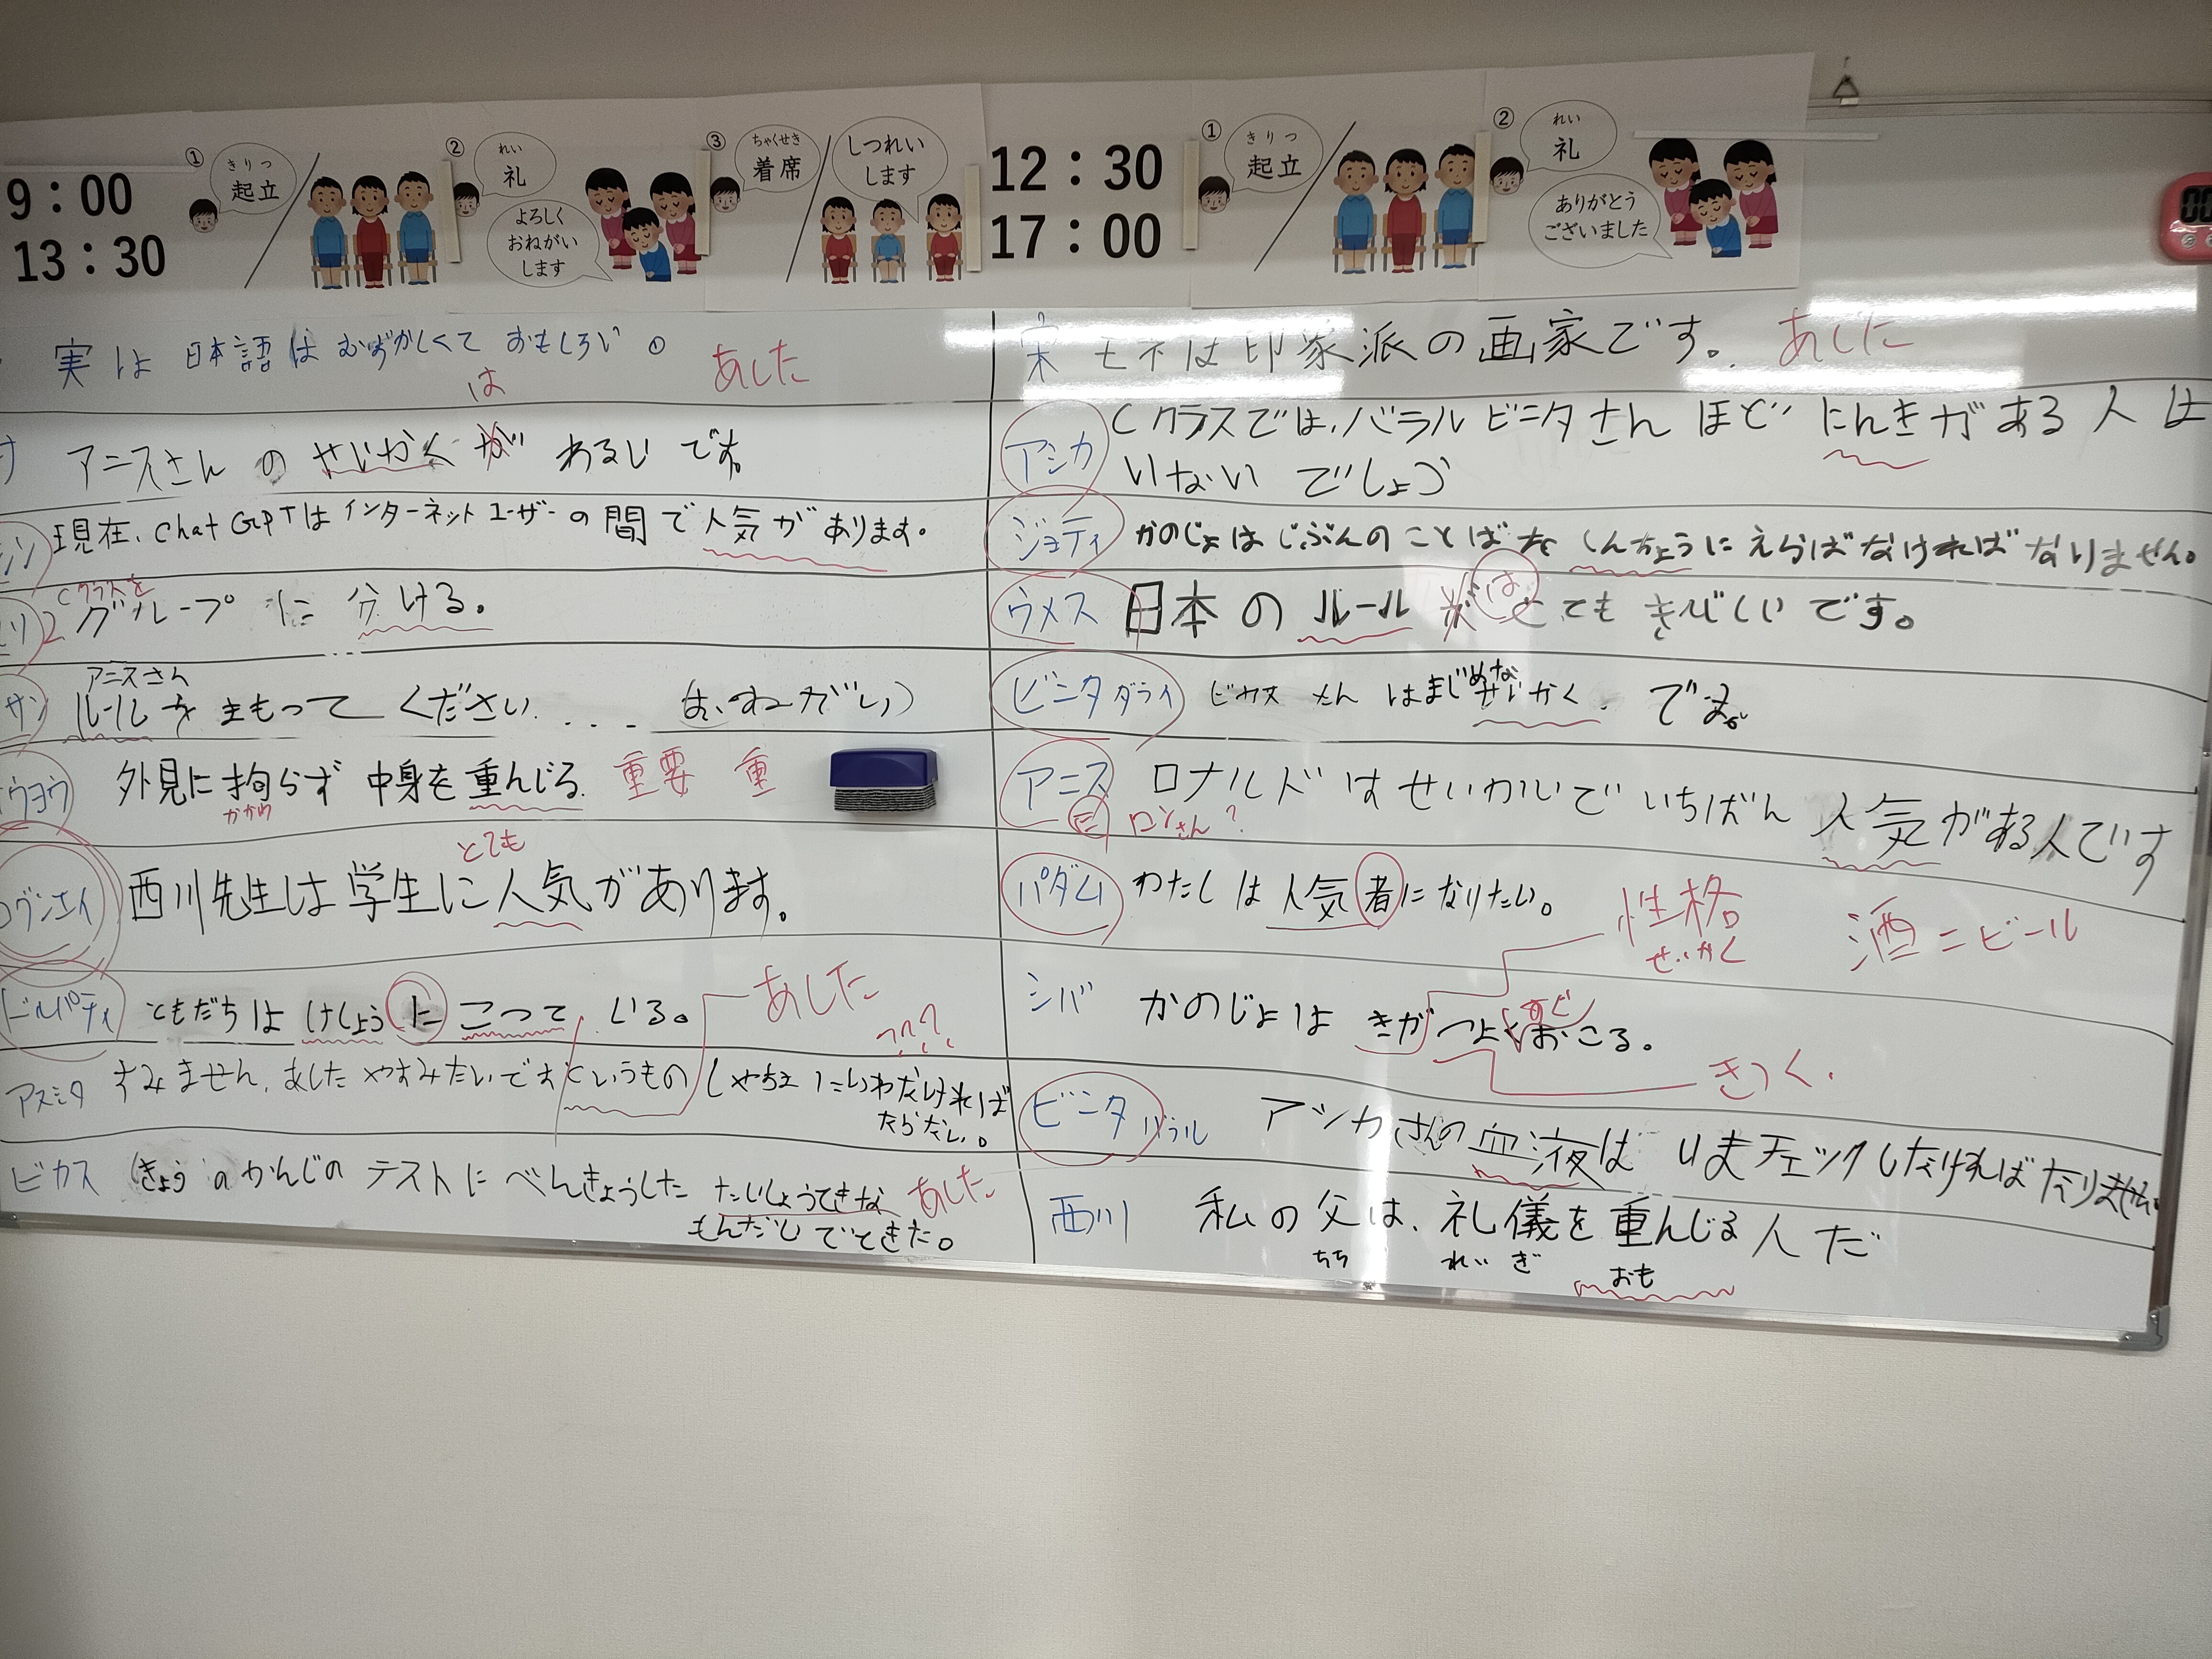 9：00
13：30
① きりつ
起立
② れい
礼
よろしく
おねがい
します
③ ちゃくせき
着席
しつれい
します
12：30
17：00
① きりつ
起立
② れい
礼
ありがとう
ございました
実は 日本語は むずかしくて おもしろい。
は
あした
アニスさん の せいかく が わるい です。
現在、chat GPTは インターネット ユーザー の 間 で 人気が あります。
Cクラスを
2 グループ に 分ける。
サン
アニスさん
ルールを まもって ください.... (おねがい)
ウヨウ
外見に拘らず 中身を 重んじる. 重要 重
かかわ
とても
西川先生は学生に人気があります。
ともだちは けしょう に こって いる。
あした
アスミタ すみません、あした やすみたいです というもの しゃちょうに いわなければ
ならない。
ビカス きょう の かんじの テストに べんきょうした たいしょうてきな あした
もんだい でてきた。
宋 モネは印象派の画家です。 あした
アシカ Cクラスでは、バラル ビニタさん ほど にんきが ある 人 は
いない でしょう
ジョティ かのじょは じぶんの ことばを しんちょうに えらばなければ なりません。
ウメス 日本 の ルール が は とても きびしい です。
ビニタ ダライ ビカス さん は まじめな せいかく. です。
アニス ロナルド は せいかいで いちばん 人気が ある人です
ロンさん?
パダム わたし は 人気者になりたい。
性格
せいかく
酒=ビール
シバ かのじょは きが つよく おこる。
きつく.
ビニタ バラル アシカさんの 血液は いまチェックしなければ なりません。
西川 私の父は、礼儀を重んじる人だ
ちち れい ぎ おも